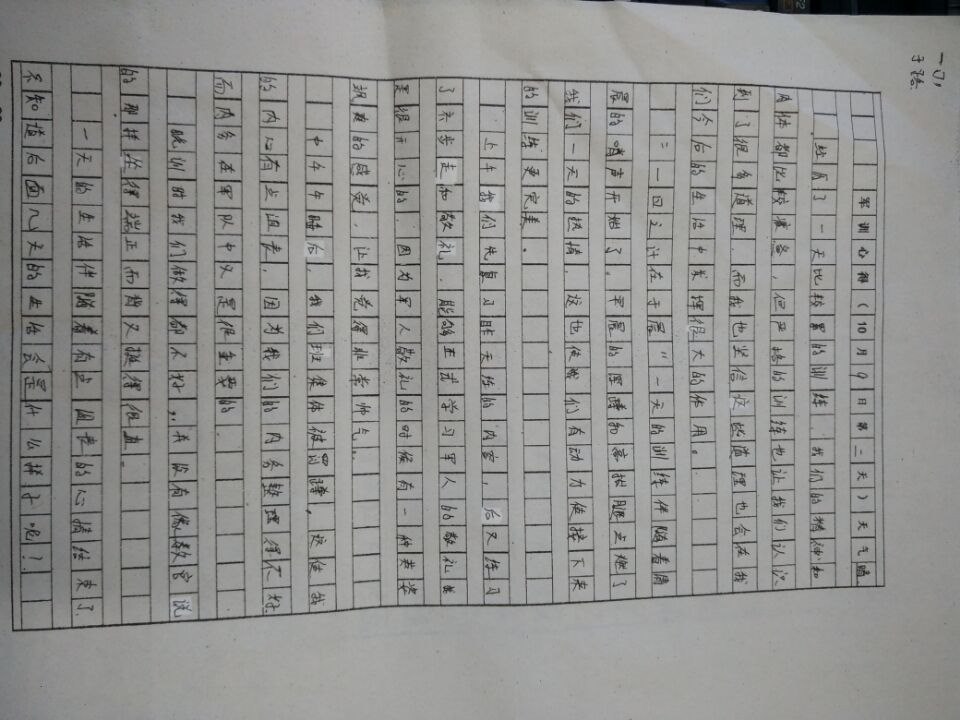 军训心得（10月9日 第二天）天气晴
经历了一天比较累的训练，我们的精神和
肉体都比较疲惫，但严格的训练也让我们认识
到了很多道理，而我也坚信这些道理也会在我
们今后的生活中发挥很大的作用。
“一日之计在于晨”一天的训练伴随着清
晨的哨声开始了。早晨的深蹲和高抬腿点燃了
我们一天的热情，这也使我们有动力使接下来
的训练更完美。
上午我们先复习昨天练的内容，后又练习
了齐步走和敬礼，能够正式学习军人的敬礼
是很开心的，因为军人敬礼的时候有一种英姿
飒爽的感觉，让我觉得非常帅气。
中午午睡后，我们班集体被罚蹲，这使我
的内心有点沮丧，因为我们的内务整理得不好，
而内务在军队中又是很重要的。
晚训时我们做得都不好，并没有像教官说
的那样坐得端正而腰又挺得很直。
一天的生活伴随着有点沮丧的心情结束了，
不知道后面几天的生活会是什么样子呢？